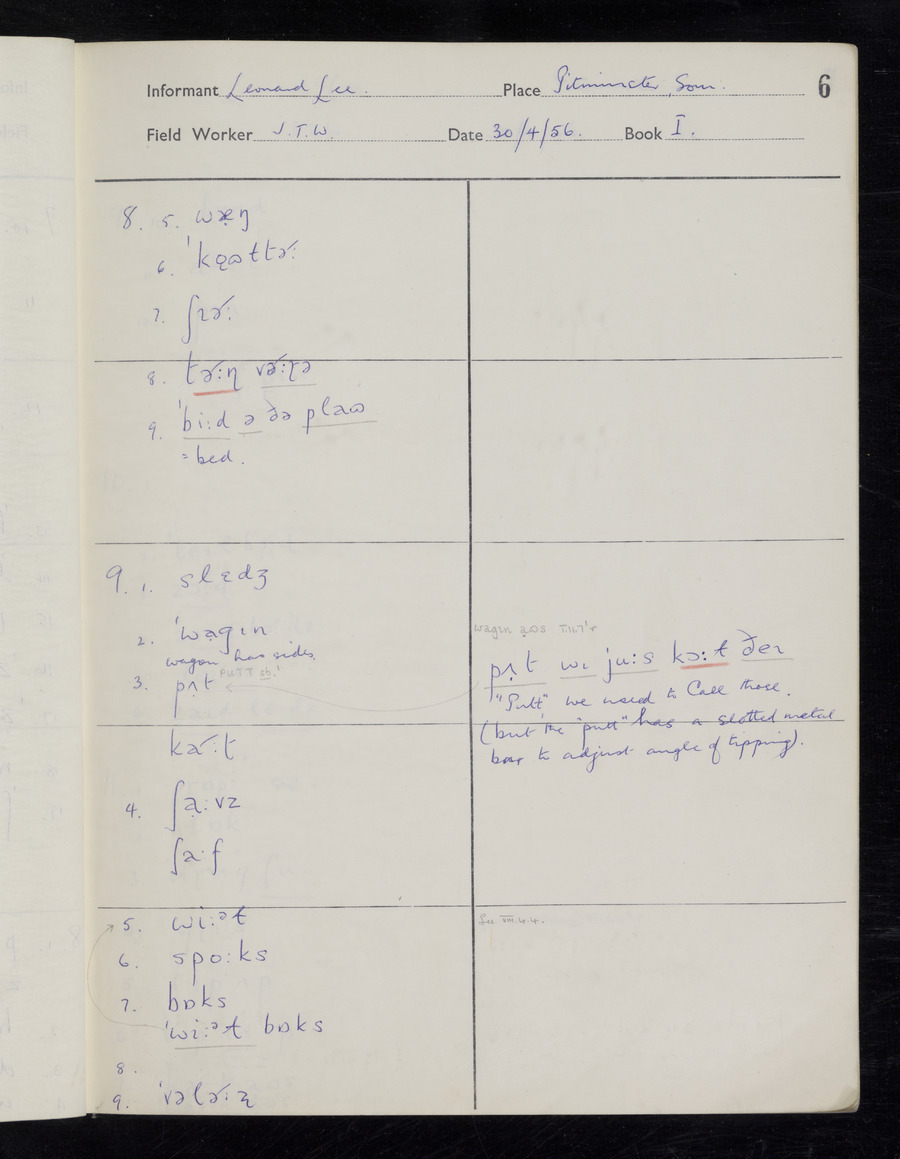 Informant Leonard Lee. Place Pitminster, Som. 6
Field Worker J.T.W. Date 30/4/56. Book I.
8. 5. wæ̣ŋ
6. ˈkɑ̨ɷttə˞:
7. ʃɹə˞:
8. tə˞:ɳ və˞:ɽə
9. ˈbi:d ə ðə plaɷ
= bed.
9. 1. slɛdʒ
2. ˈwạgɪn
wagon has sides.
3. pʌ̣t PUTT sb.¹
ka˞:t
4. ʃạ:vz
ʃa:f
5. wi:ᵊɫ
6. spo:ks
7. bɒks
ˈwi:ᵊɫ bɒks
8.
9. ˈvələ˞:ʐ
wagɪn
pʌ̣t wɪ ju:s kɔ:ɫ ðeɪ
"Putt" we used to call those.
(but the "putt" has a slotted metal
bar to adjust angle of tipping).
See VIII.4.4.